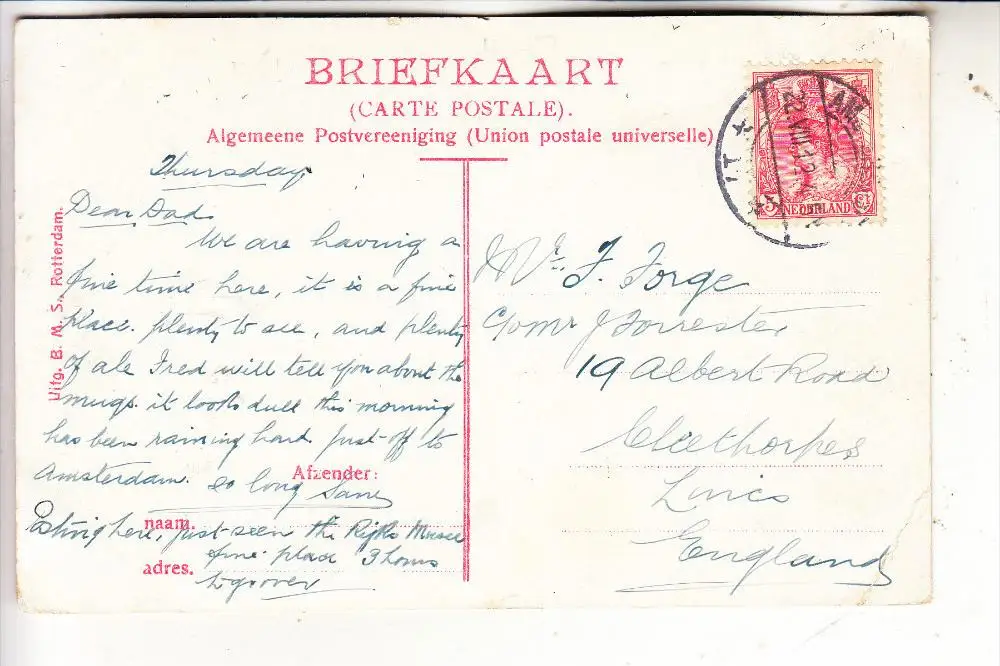 BRIEFKAART
(CARTE POSTALE).
Algemeene Postvereeniging (Union postale universelle)
Uitg. B. M. S., Rotterdam.
Thursday
Dear Dad
We are having a
fine time here, it is a fine
place. plenty to see, and plenty
of ale Fred will tell you about the
mugs. it looks dull this morning
has been raining hard just off to
Amsterdam. so long
Afzender:
naam.
adres.
here, just seen the Rijks
fine place 3 hours
to go over
Mr. F. Forge
c/o Mr J Forrester
19 Albert Road
Cleethorpes
Lincs
England
NEDERLAND
AM